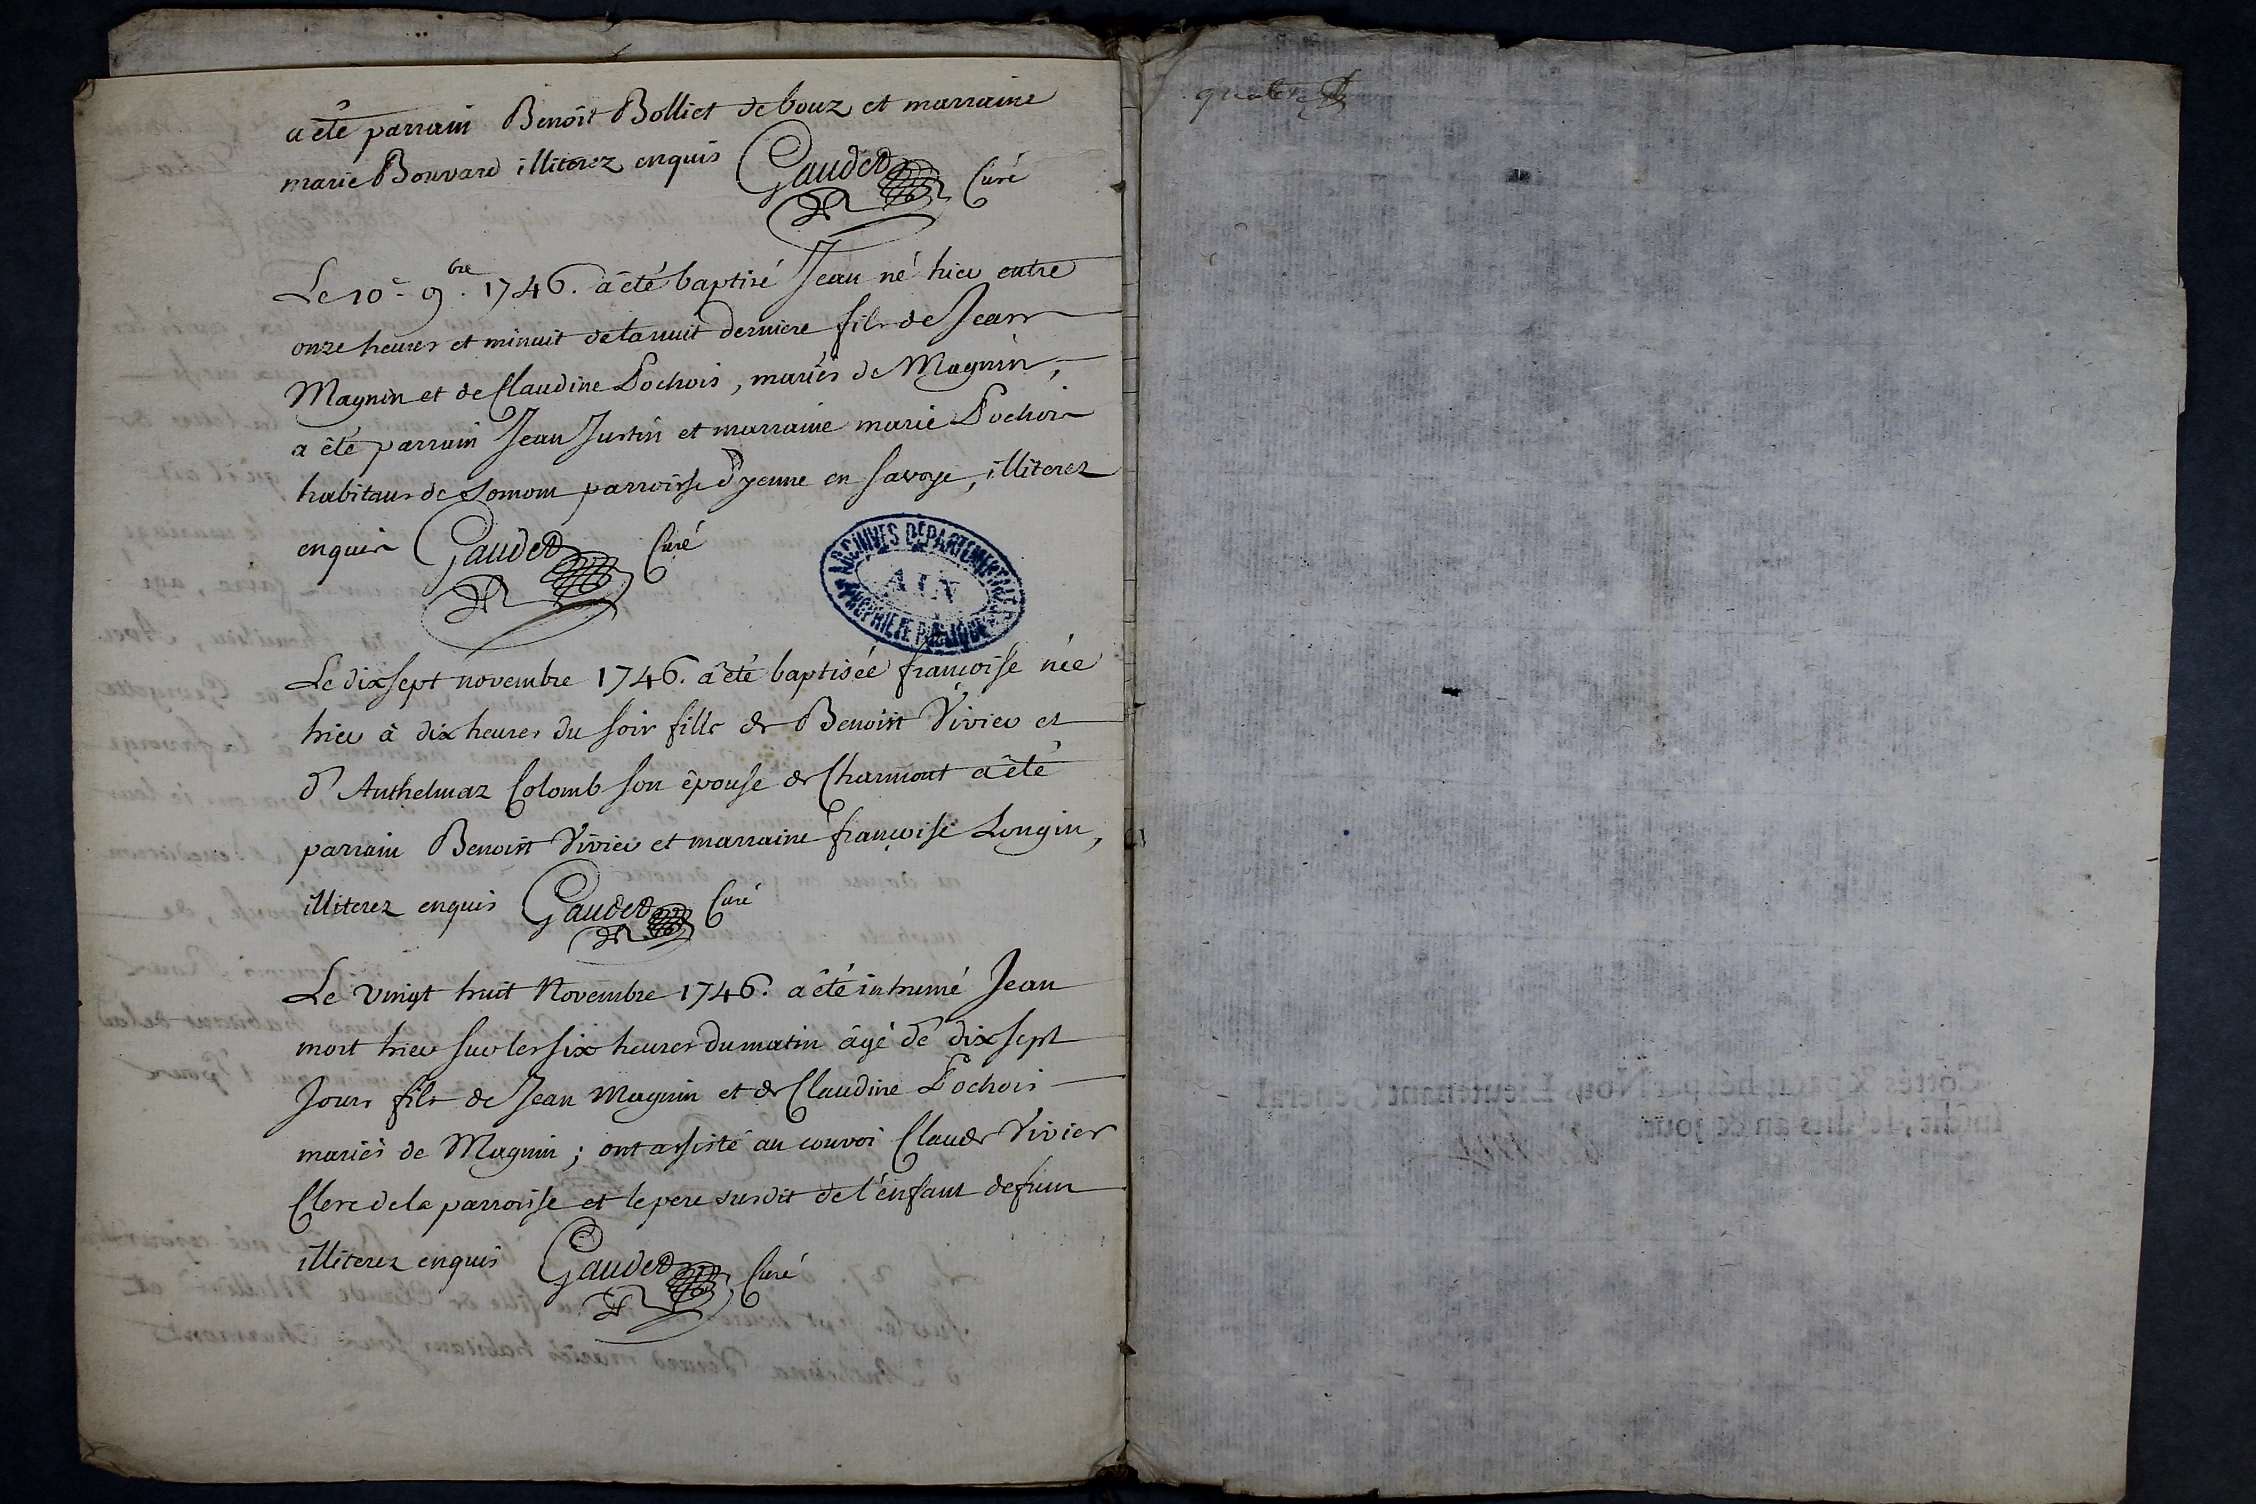 a êté parrain Benoit Bolliet de bouz et marraine
marie Bouvard illiterez enquis Gaudet Curé
Le 10e 9bre. 1746. a êté baptisé Jean né hier entre
onze heures et minuit de la nuit derniere fils de Jean
Magnin et de Claudine Pochois, mariés de Magnin,
a êté parrain Jean Justin et marraine marie Pochois
habitans de Lomom parroisse d'yenne en savoye, illiterez
enquis Gaudet Curé
ARCHIVES DÉPARTEMENTALES
AIN
PROPRIÉTÉ PUBLIQUE
Le dixsept novembre 1746. a êté baptisée françoise née
hier à dix heures du soir fille de Benoist Vivier et
d'Anthelmaz Colomb son êpouse de Charmont a êté
parrain Benoist Vivier et marraine françoise Longin,
illiterez enquis Gaudet Curé
Le vingt huit Novembre 1746. a êté inhumé Jean
mort hier sur les six heures du matin âgé de dixsept
Jours fils de Jean Magnin et de Claudine Pochois
mariés de Magnin; ont assisté au convoi Claude Vivier
Clerc de la parroisse et le pere susdit de l'enfant defunt
illiterez enquis Gaudet Curé
quatre